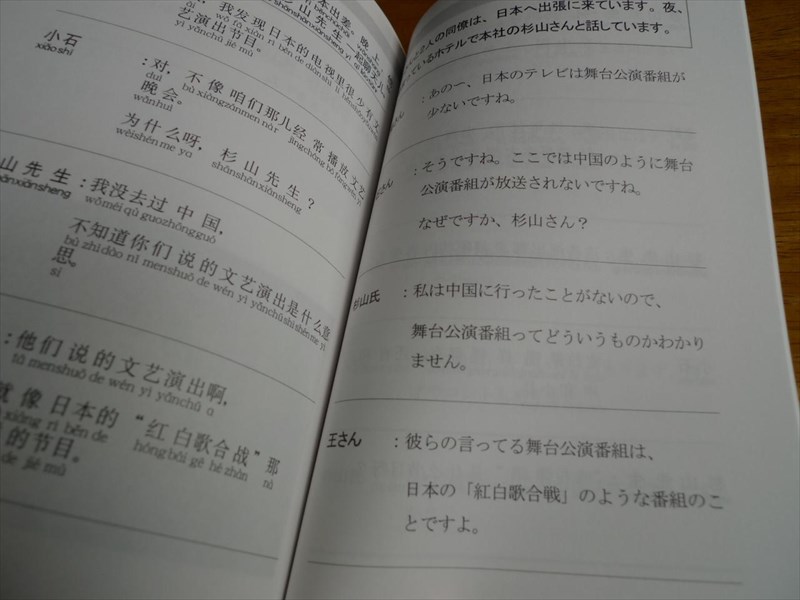 本出差。晚上,
山先生一起聊天儿
我发现日本的电视里很少有文
wǒ fā xiàn rì běn de diàn shì lǐ hěn shǎo yǒu
艺演出节目。
yì yǎnchū jié mù
小石
xiǎo shí
:对,不像咱们那儿经常播放文艺
duì bù xiàng zánmen nàr jīngcháng bō fàng wén yì
晚会。
wǎnhuì
为什么呀,杉山先生?
wèishénme ya shānshānxiānsheng
山先生
:我没去过中国,
wǒméi qù guozhōngguó
不知道你们说的文艺演出是什么意
bù zhīdào nǐ menshuō de wén yì yǎnchū shì shénme yì
思。
si
:他们说的文艺演出啊,
tā menshuō de wén yì yǎnchū a
就像日本的“红白歌合战”那
xiàng rì běn de hóngbái gē hé zhàn nà
的节目。
de jié mù
2人の同僚は、日本へ出張に来ています。夜、
っているホテルで本社の杉山さんと話しています。
さん
:あのー、日本のテレビは舞台公演番組が
少ないですね。
さん
:そうですね。ここでは中国のように舞台
公演番組が放送されないですね。
なぜですか、杉山さん?
杉山氏
:私は中国に行ったことがないので、
舞台公演番組ってどういうものかわかり
ません。
王さん
:彼らの言ってる舞台公演番組は、
日本の「紅白歌合戦」のような番組のこ
とですよ。